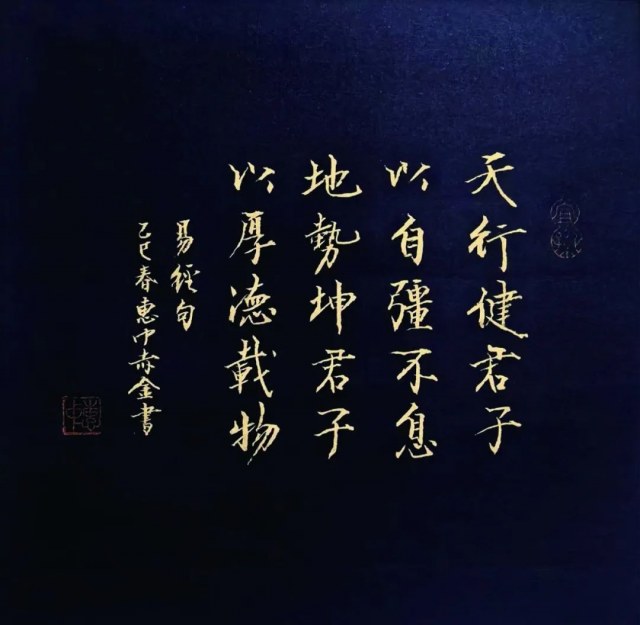 天行健君子
以自彊不息
地勢坤君子
以厚德載物
易經句
乙巳春惠中赤金書